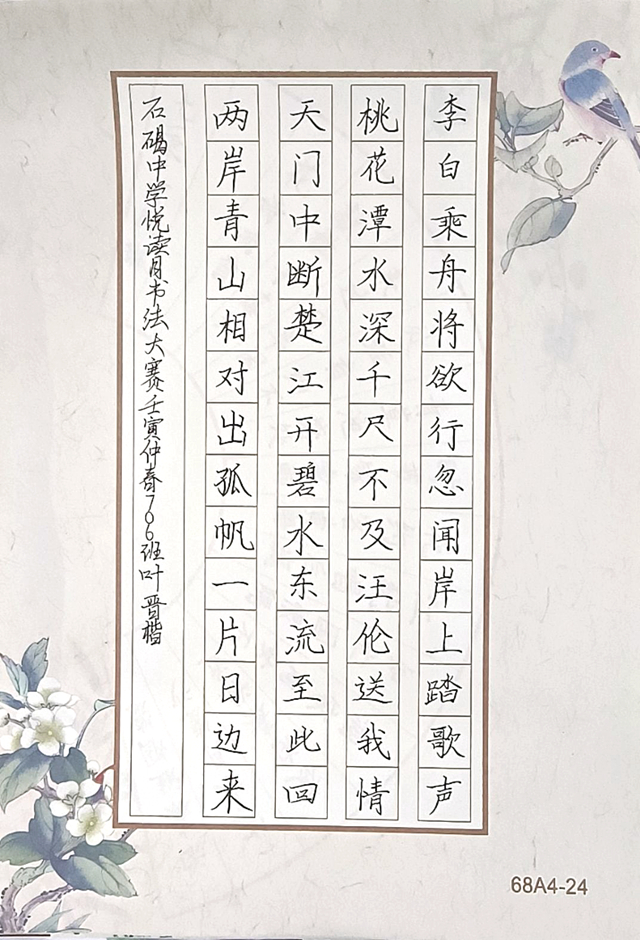 李白乘舟将欲行忽闻岸上踏歌声
桃花潭水深千尺不及汪伦送我情
天门中断楚江开碧水东流至此回
两岸青山相对出孤帆一片日边来
石碣中学悦读月书法大赛壬寅仲春706班叶晋楷
68A4-24